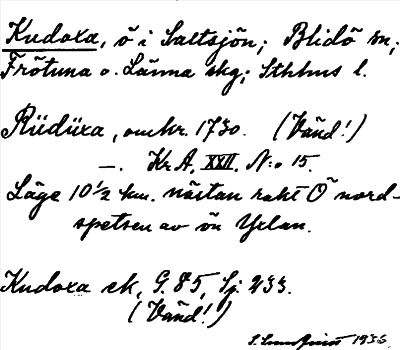 Kudoxa, ö i Saltsjön; Blidö sn,
Frötuna o. Länna skg; Sthlms l.
Rüdüxa, omkr. 1730. (Vänd!)
—. Kr. A. XXII. N:o 15.
Läge 10 1/2 km. nästan rakt Ö nord-
spetsen av ön Yxlan.
Kudoxa ek, G. 85, Sj. 233.
(Vänd!)
1936.